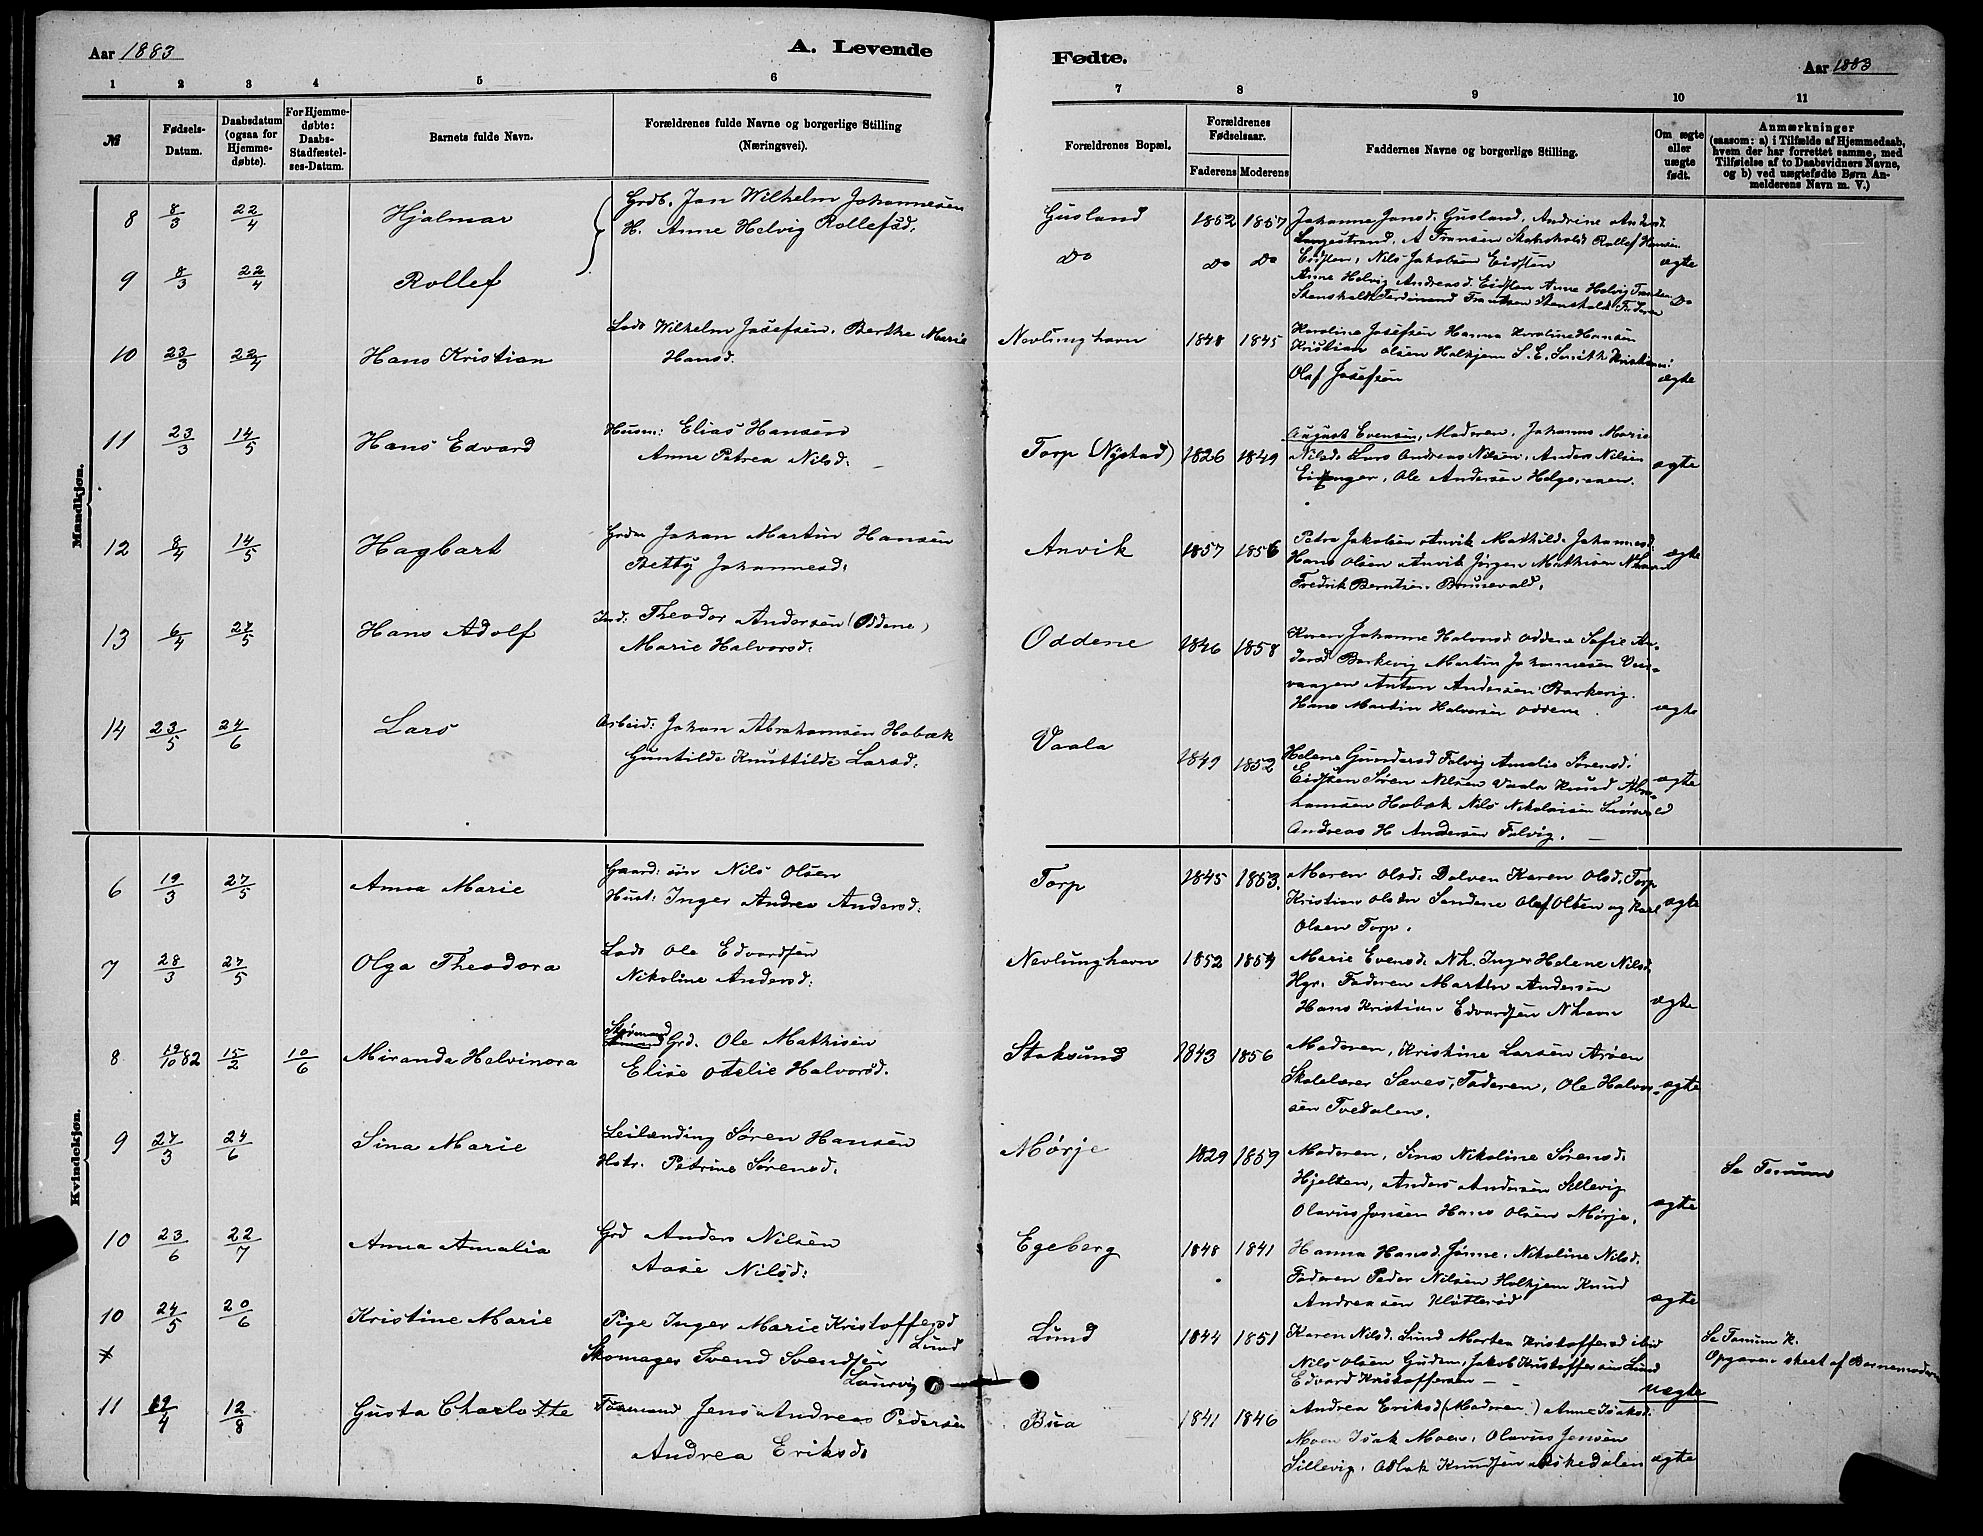 Aar 1883
A. Levende
1 2 3 4 5 6
№
Fødsels-Datum.
Daabsdatum (ogsaa for Hjemmedøbte).
For Hjemmedøbte: Daabs-Stadfæstelses-Datum.
Barnets fulde Navn.
Forældrenes fulde Navne og borgerlige Stilling
(Næringsvei).
Mandkjøn.
8 8/3 22/4 Hjalmar Grdb. Jan Wilhelm Johannesen
H. Anne Helvig Rollefsd.
9 8/3 22/4 Rollef
10 23/3 22/4 Hans Kristian Lods Wilhelm Josefsen. Berthe Marie
Hansd.
11 23/3 14/5 Hans Edvard Husm: Elias Hansen
Anne Petrea Nilsd:
12 8/4 14/5 Hagbart Johan Martin Hansen
Betty Johannesd:
13 6/4 27/5 Hans Adolf Ind: Theodor Andersen (Oddene)
Marie Halvorsd:
14 23/5 24/6 Lars Arbeid: Johan Abrahamsen Hobæk
Guntilde Knuttilde Larsd:
Kvindekjøn.
6 19/3 27/5 Anna Marie Gaard: Nils Olsen
Hust: Inger Andrea Andersd:
7 28/3 27/5 Olga Theodora Lods Ole Edvardsen
Nikoline Andersd:
8 19/10 82 15/2 10/6 Miranda Helvinora Styrmand Grd. Ole Mathisen
Elise Otelie Halvorsd.
9 27/3 24/6 Sina Marie Leilænding Søren Hansen
Hstr. Petrine Sørensd.
10 23/6 22/7 Anna Amalia Grd Anders Nilsen
Aase Nilsd:
10 24/5 20/6 Kristine Marie Pige Inger Marie Kristoffersd
Lund
Skomager Svend Svendsen
Laurvig
11 12/8 Gusta Charlotte Jens Andreas Pedersen
Andrea Eriksd.
Fødte.
Aar 1883
7 8 9 10 11
Forældrenes Bopæl.
Forældrenes Fødselsaar.
Faderens Moderens
Faddernes Navne og borgerlige Stilling.
Om ægte eller uægte født.
Anmærkninger
(saasom: a) i Tilfælde af Hjemmedaab,
hvem der har forrettet samme, med
Tilføielse af to Daabsvidners Navne,
og b) ved uægtefødte Børn Anmelderens Navn m. V.)
Gusland 1852 1857 Johanne Jansd. Gusland, Andrine Andersd.
Langestrand, A Fransen Stensholt Rollef Hansen
Do Do Do Eidsten, Nils Jakobsen Eidsten ægte
Anne Helvig Andreasd. Eidsten Anne Helvig Frantsen
Stensholt Ferdinand Frantsen Stensholt Faderen Do
Nevlunghavn 1848 1845 Karoline Josefsen Hanna Karoline Hansen
Kristian Olsen Holkjem S. E. Smith
Olaf Josefsen ægte
Torp (Nystad) 1826 1849 August Evensen, Moderen, Johanne Marie
Nilsd. Lars Andreas Nilsen, Anders Nilsen
Ole Andersen ægte
Anvik 1857 1856 Petra Jakobsen Anvik Mathild. Johannesd:
Hans Olsen Anvik Jørgen Mathisen Nhavn
Fredrik Berntsen ægte
Oddene 1846 1858 Karen Johanne Halvorsd. Oddene Sofie An-
dersd Barkevig Martin Johannesen
Anton Andersen Barkevig.
Hans Martin Halvorsen Oddene. ægte
Vaala 1849 1852 Helene Gundersd Falvig Amalie Sørensd:
Eidsten Søren Nilsen Vaala Knud Abra-
hamsen Hobæk Nils Nikolaisen
Andreas H Andersen Falvig. ægte
Torp 1845 1853. Maren Olsd: Dolven Karen Olsd. Torp
Kristian Olsen Søndene Olaf Olsen og Karl
Olsen Torp. ægte
Nevlunghavn 1852 1854 Marie Evensd. Nh. Inger Helene Nilsd.
Hgr. Faderen Martin Andersen
Hans Kristian Edvardsen Nhavn ægte
Staksund 1843 1856 Moderen, Kristine Larsen Arøen
Skolelærer Sæves, Faderen, Ole Halvor-
sen Tvedalen. ægte
Mørje 1829 1859 Moderen, Sina Nikoline Sørensd:
Hjelten, Anders Andersen Sillevig
Olavus Jonsen Hans Olsen Mørje. ægte Se Tanum
Egeberg 1848 1841 Hanna Hansd. Jonne. Nikoline Nilsd.
Faderen Peder Nilsen Holkjem Knud
Andreasen Kløtterød ægte
Lund 1844 1851 Karen Nilsd. Lund Morten Kristoffersd ibid
Nils Olsen Gudem, Jakob Kristoffersen Lund
Edvard Kristoffersen uægte
Se Tanum K.
Opgaven skeet af Barnemoderen
Bua 1841 1846 Andrea Eriksd (Moderen) Anne Isaksd:
Moen Isak Moen, Olavus Jensen
Sillevig, Aslak Knudsen Askedalen ægte